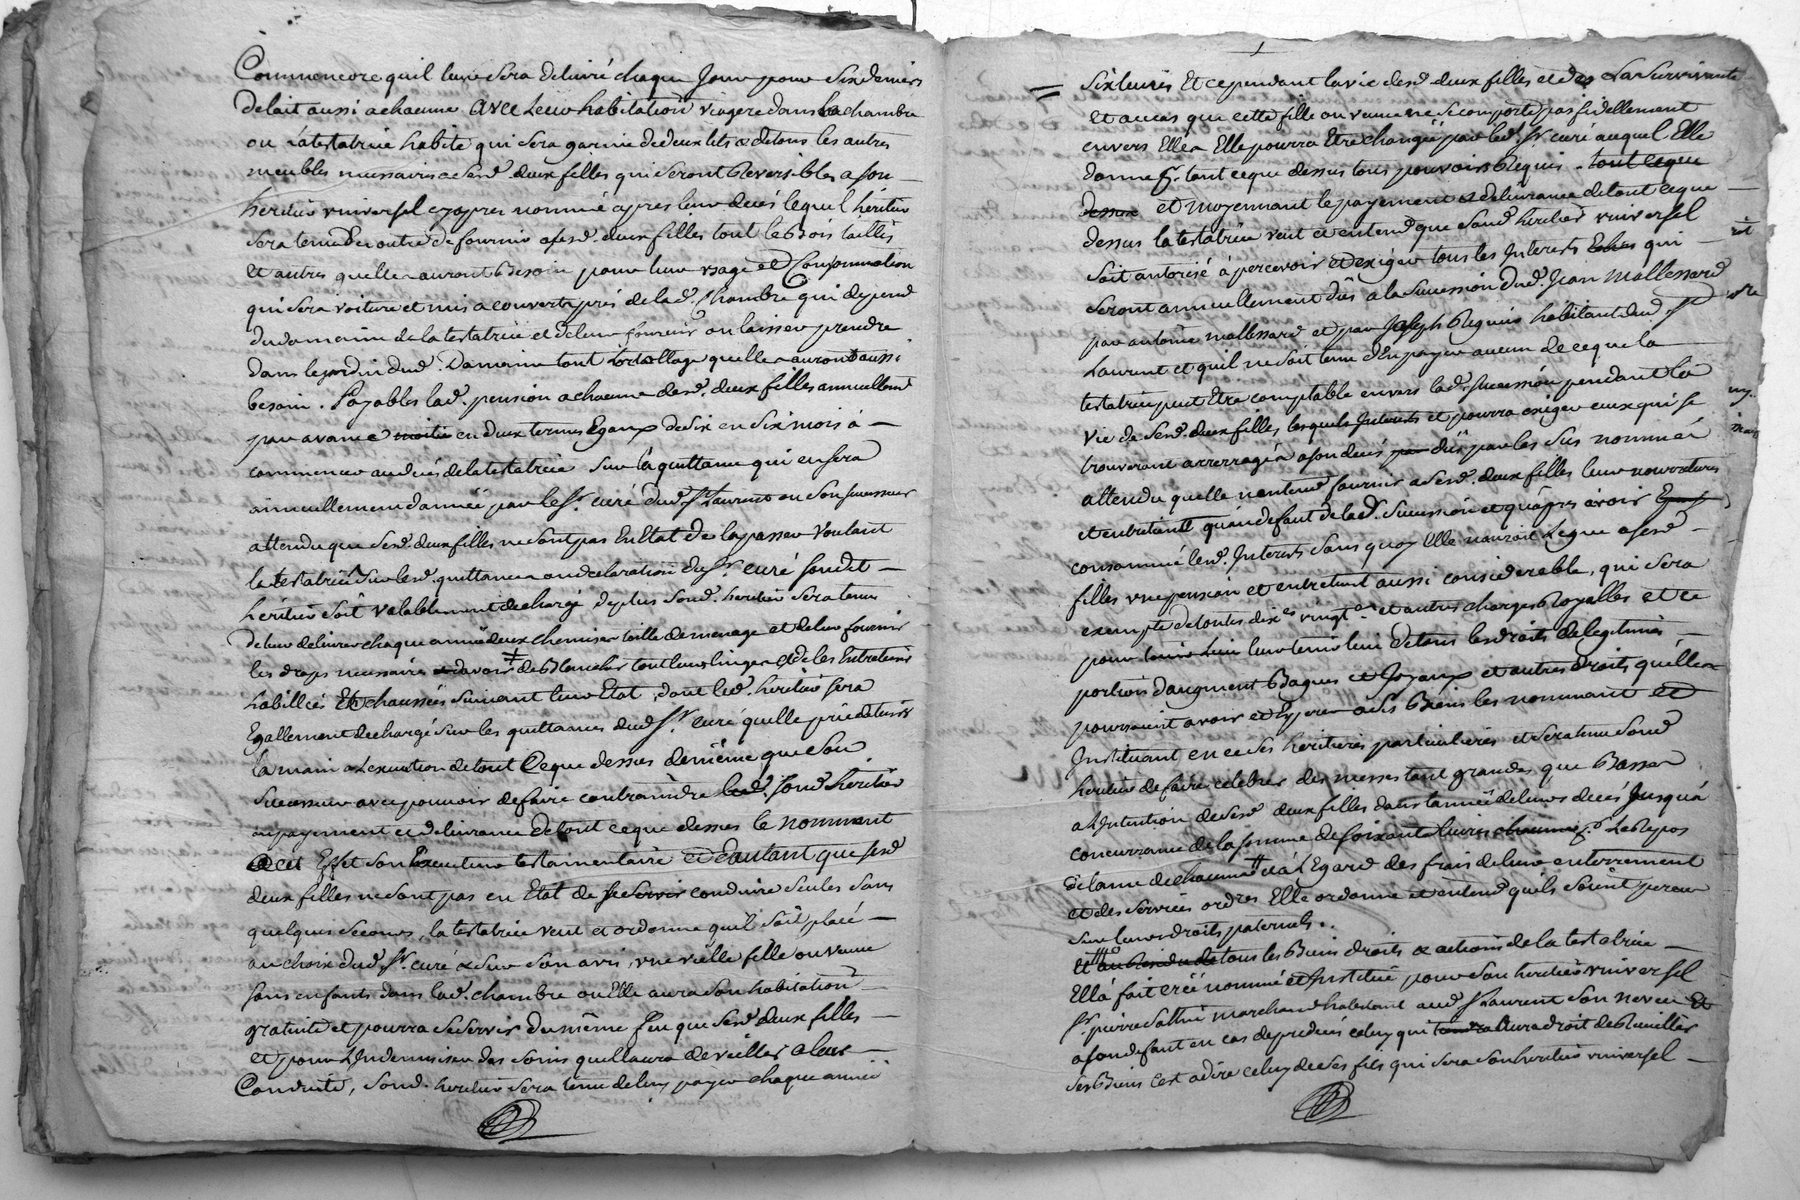 Comme encore quil luy sera delivré chaque Jour pour six deniers
delait aussi a chacune avec leur habitation viagere dans la chambre
ou la testatrice habite qui sera garnie de deux lits & de tous les autres
meubles necessaires a sesd. deux filles qui seront Reversibles a son
heritier universel cyapres nommé apres leur decés lequel héritier
sera tenu En outre de fournir asesd. deux filles tout le Bois taillis
et autres quelle auront Besoin pour leur usage et Consommation
qui sera voituré et mis a couvert prés de lad. Chambre qui depend
du domaine de la testatrice et de leur fournir ou laisser prendre
dans le jardin dud. Domaine tout hortollage quelle auront aussi
besoin. Payables lad. pension a chacune desd. deux filles annuellemt
par avance moitié en deux termes Egaux de six en six mois à
commencer au decés de la testatrice sur la quittance qui en sera
annuellement donnée par le Sr. curé dud. St Laurent ou son successeur
attendu que sesd. deux filles ne sont pas En Etat de la passer voulant
la testatrice que sur lesd. quittances ou declaration du Sr. curé sondit
héritier soit valablement dechargé deplus sond. heritier sera tenu
de leur delivrer chaque année deux chemises toille de menage et de leur fournir
les draps necessaires de Blanchir tout leur linge et de les Entretenir
habillées Et chaussées suivant leur Etat, dont led. heritier sera
Egallement dechargé sur les quittances dud Sr. curé quelle prie de tenir
la main a Lexecution de tout Ceque dessus de même que son
successeur avec pouvoir de faire contraindre led. sond. héritier
au payement et delivrance de tout ceque dessus le nommant
Acet Effet son Executeur testamentaire et d'autant que sesd
deux filles ne sont pas en Etat de se servir conduire seules sans
quelques secours, la testatrice veut et ordonne quil soit placé
au choix dud. Sr. curé & sur son avis, une vielle fille ou veuve
sans enfants dans lad. chambre ou Elle aura son habitation
gratuite et pourra se servir du même feu que sesd deux filles
et pour L'Indemniser des soins quelle aura de veiller a leur
Conduite, sond. heritier sera tenu de luy payer chaque année
six livres Et cependant la vie desd. deux filles et de La Survivante
et au cas que cette fille ou veuve ne se comporte pas fidellement
envers Elles Elle pourra Etre changée par led. Sr. curé auquel Elle
donne Sr. tant ceque dessus tous pouvoirs Requis. tout ceque
dessus et moyennant le payement & delivrance de tout ceque
dessus la testatrice veut et entend que sond heritier universel
soit autorisé à percevoir et exiger tous les Interests Echus qui
seront annuellement dûs a la sucession dud. Jean Mallessard
par antoine mallessard et par Joseph Requis habitant dud. St
Laurent et quil ne soit tenu d'En payer aucun de ceque la
testatrice peut Etre comptable envers lad. sucession pendant la
vie de sesd. deux filles lesquels Interests et pourra exiger ceux qui se
trouveront arreragés a son decés par dûs par les sus nommés
attendu quelle n'entend fournir a sesd. deux filles leur nourriture
et entretient quau defaut de lad. sucession et quapres avoir
consommé lesd. Interests sans quoy Elle nauroit Legué a sesd
filles une pension et entretient aussi considerable, qui sera
exempte de toutes dixes vingtes et autres charges Royalles et ce
pour leur tenir lieu de tous les droits de legitime
portions d'augment Bagues et Joyaux et autres droits quelles
pourroient avoir et Esperer a ses Biens les nommant et
Instituant en ce ses heritieres particulieres et sera tenu sond
heritier de faire celebrer des messes tant grandes que Basses
a L'Intention de sesd deux filles dans lannée de leurs decés Jusquá
concurrance de la somme de soixante livres chacune pr. Le Repos
de lame de chacune et à L'Egard des frais de leur enterrement
et des services ordres Elle ordonne et entend quils soient pris
sur leurs droits paternels.
Et au Residu de tous les Biens droits & actions de la testatrice
Ella fait créé nommé et Institué pour son heritier universel
Sr. pierre mathieu marchand habitant aud St Laurent son neveu Et
a son defaut en cas de predecés celuy qui aura droit de Recueillir
ses Biens c'est a dire celuy de ses fils qui sera son heritier universel